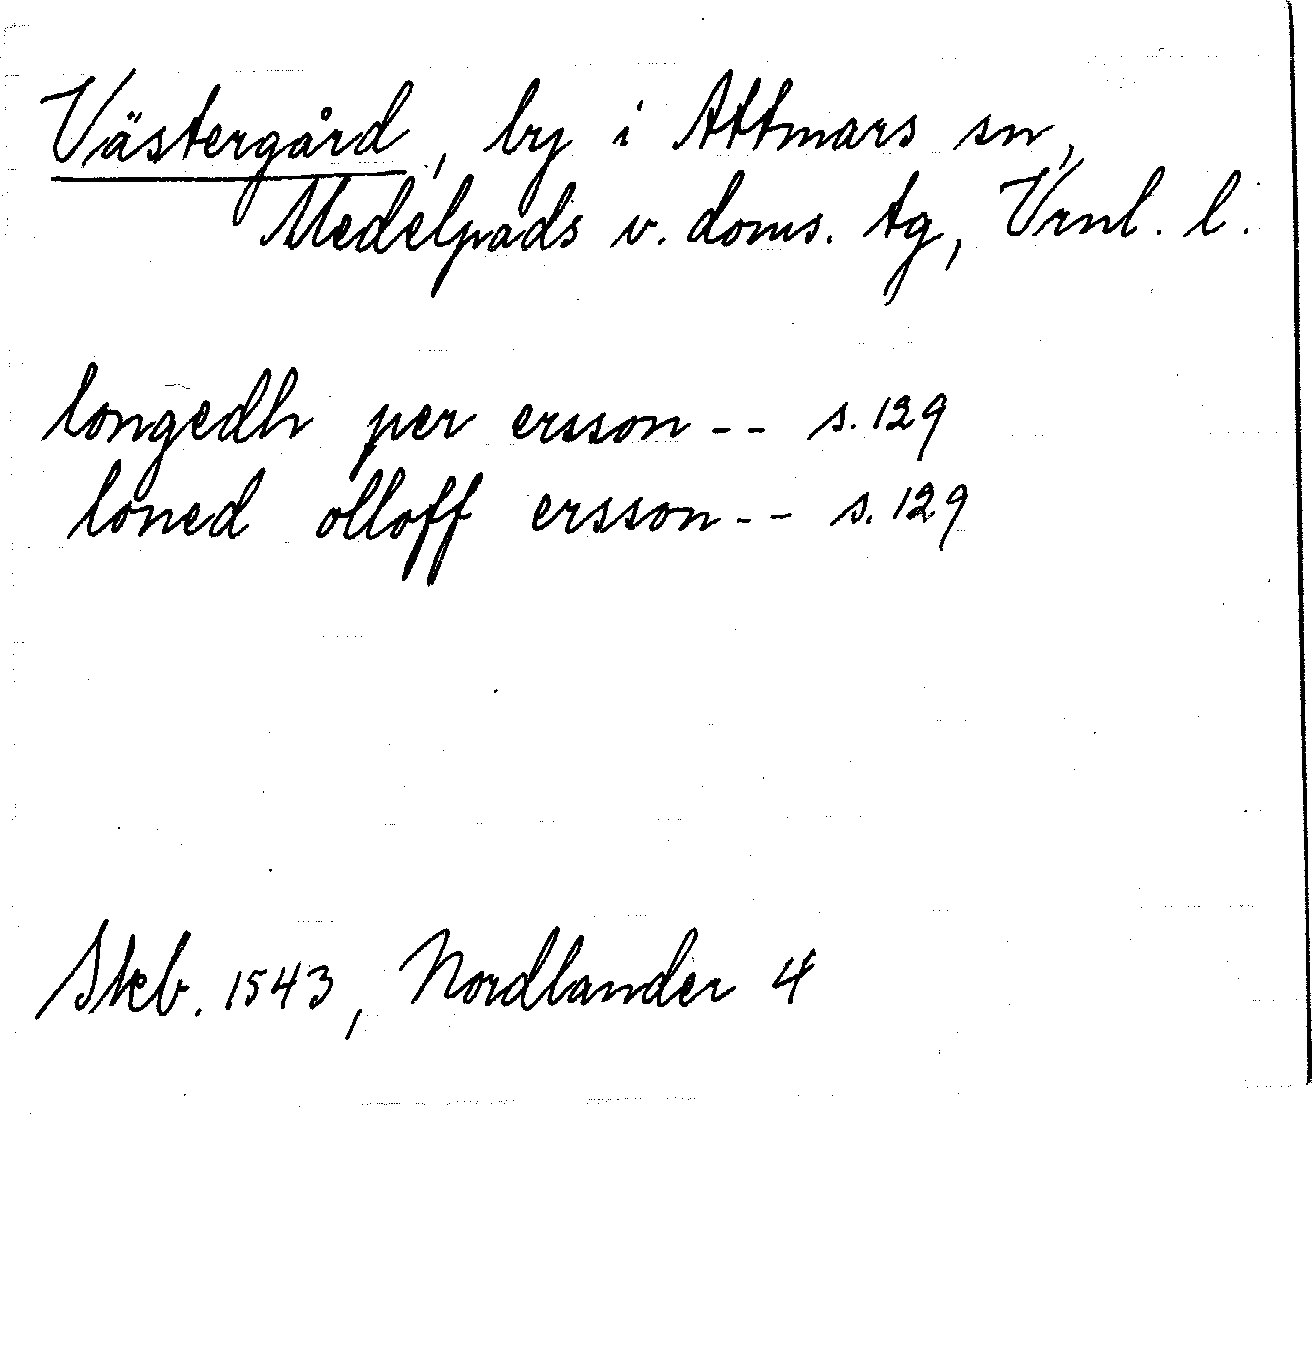 Västergård, by i Attmars sn,
Medelpads v. doms. tg, Vrnl. l.
longedh per ersson -- s. 129
loned olloff ersson -- s. 129
Skb. 1543, Nordlander 4